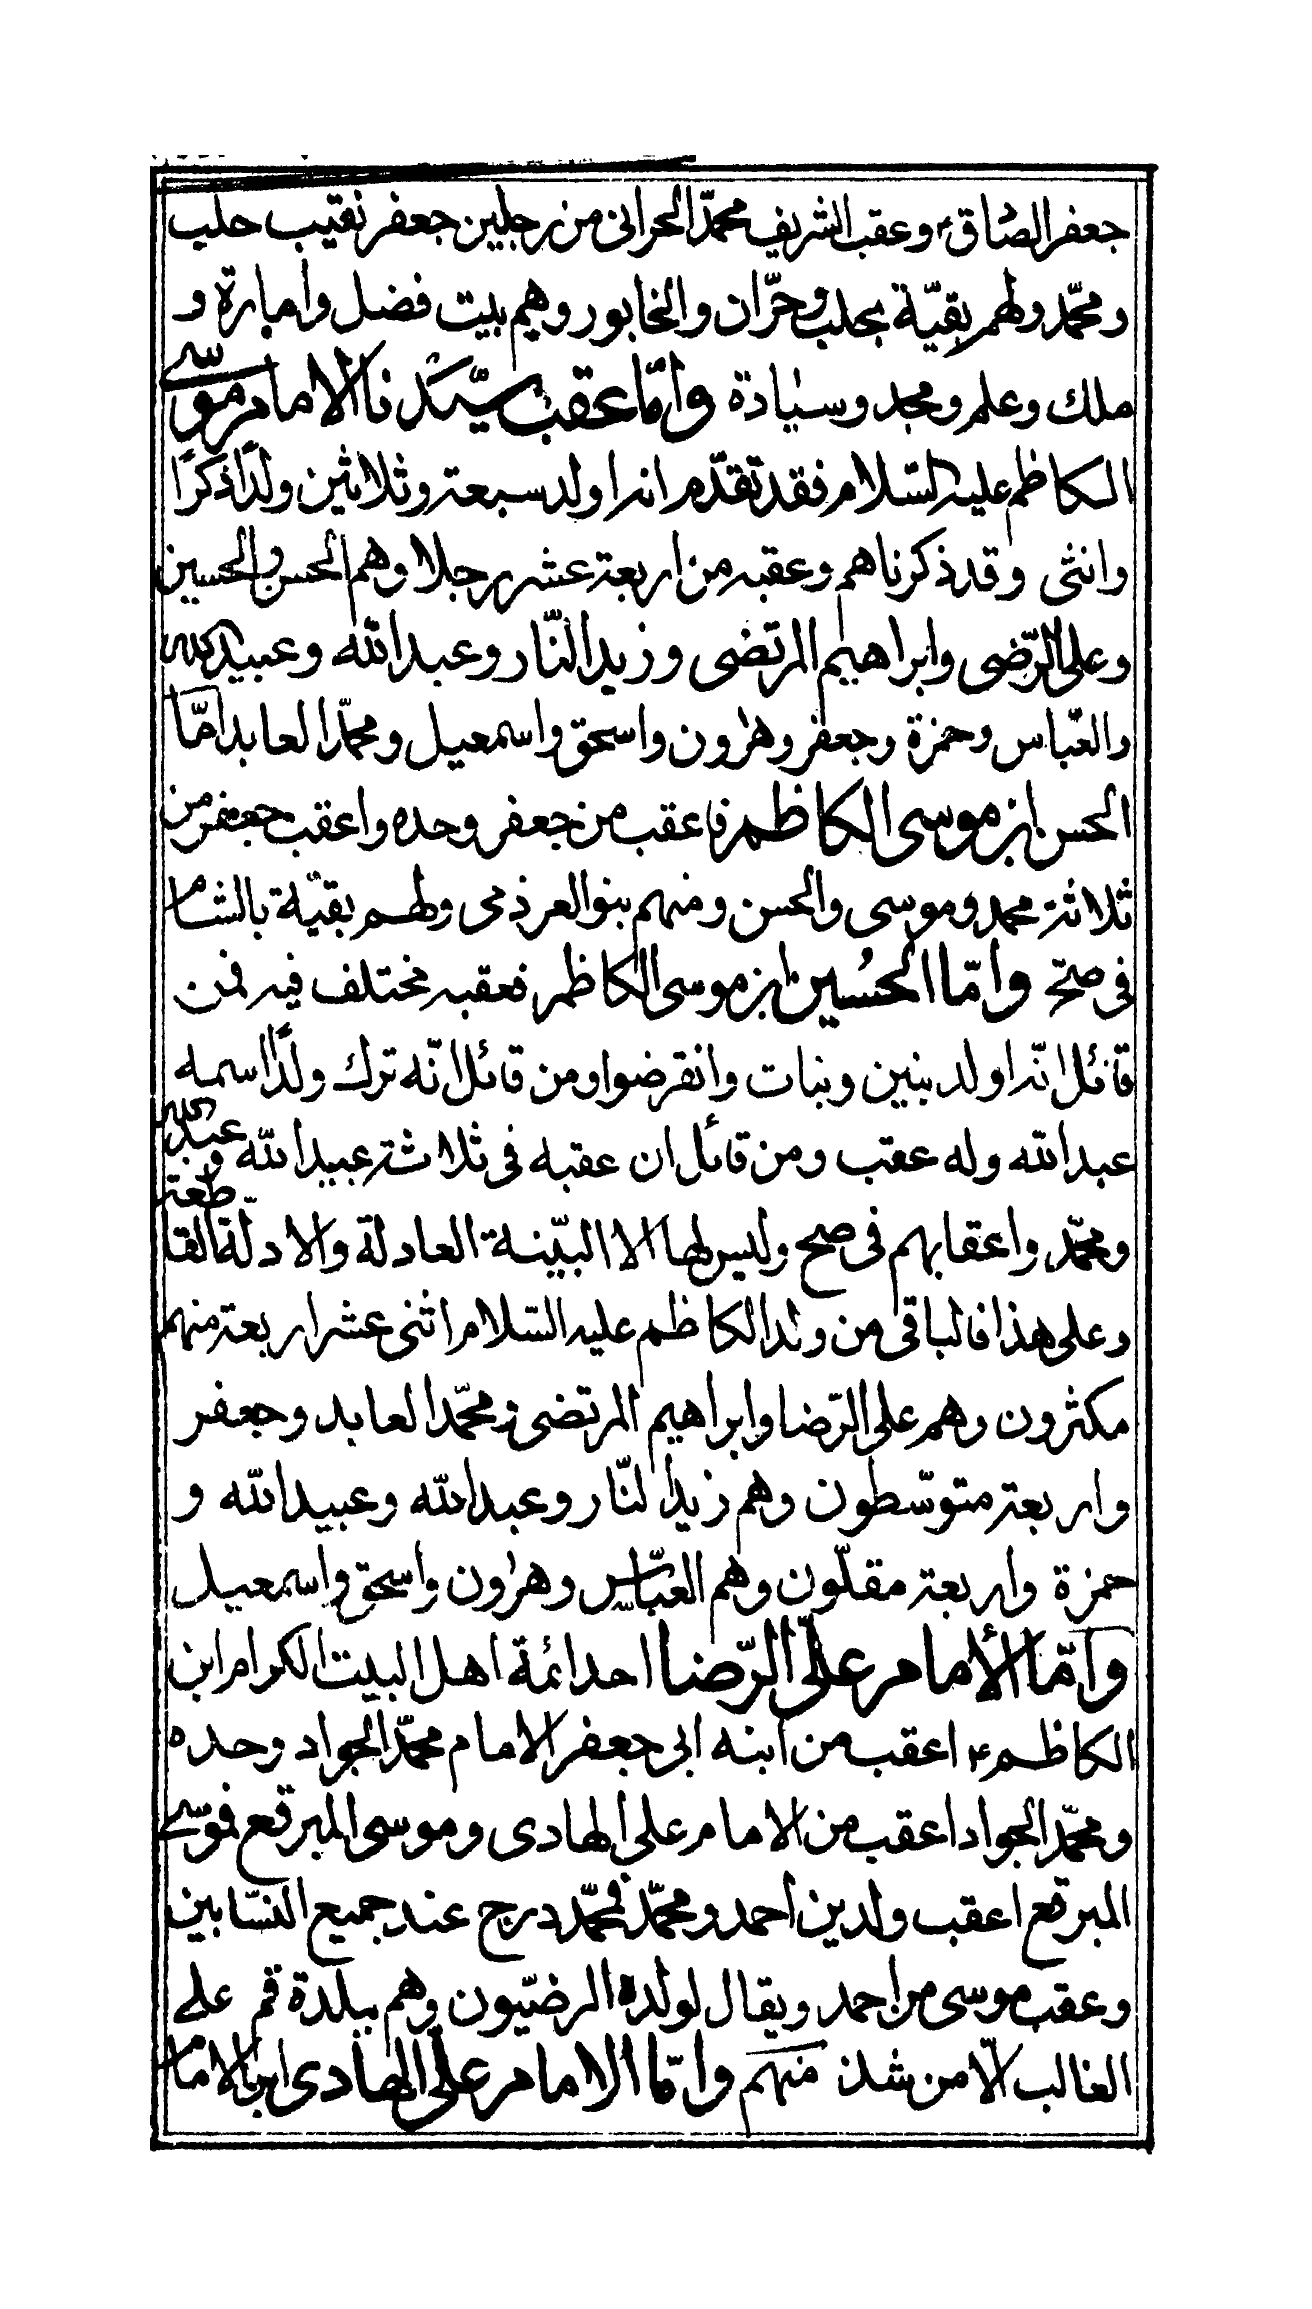 جعفر الصادق ع وعقب الشريف محمّد الحرانى من رجلين جعفر نقيب حلب
ومحمّد ولهم بقيّة بحلب وحرّان والخابور وهم بيت فضل وامارة و
ملك وعلم ومجد وسيادة وامّا عقب سيّدنا الامام موسى
الكاظم عليه السّلام فقد تقدّم انه اولد سبعة وثلاثين ولدًا ذكرًا
وانثى وقد ذكرناهم وعقبه من اربعة عشر رجلا وهم الحسن والحسين
وعلى الرّضى وابراهيم المرتضى وزيد النّار وعبد الله وعبيد الله
والعبّاس وحمزة وجعفر وهرون واسحق واسمعيل ومحمّد العابد امّا
الحسن ابن موسى الكاظم فاعقب من جعفر وحده واعقب جعفر من
ثلاثة محمد وموسى والحسن ومنهم بنو العرزمى ولهم بقيّة بالشام
فى صحّ وامّا الحسين ابن موسى الكاظم فعقبه مختلف فيه فمن
قائل انّه اولد بنين وبنات وانقرضوا ومن قائل انّه ترك ولدًا اسمه
عبد الله وله عقب ومن قائل ان عقبه فى ثلاثة عبيد الله وعبد الله
ومحمّد واعقابهم فى صح وليس لها الا البيّنة العادلة والادلّة القاطعة
وعلى هذا فالباقى من ولد الكاظم عليه السّلام اثنى عشر اربعة منهم
مكثرون وهم على الرّضا وابراهيم المرتضى ومحمّد العابد وجعفر
واربعة متوسّطون وهم زيد النّار وعبد الله وعبيد الله و
حمزة واربعة مقلّون وهم العبّاس وهرون واسحق واسمعيل
وامّا الأمام علىّ الرّضا احد ائمة اهل البيت الكرام ابن
الكاظم ع اعقب من ابنه ابى جعفر الامام محمّد الجواد وحده
ومحمّد الجواد اعقب من الامام على الهادى وموسى المبرقع فموسى
المبرقع اعقب ولدين احمد ومحمّد فمحمّد درج عند جميع النسّابين
وعقب موسى من احمد ويقال لولده الرضيّون وهم ببلدة قم على
الغالب الّا من شذ منهم وامّا الامام على الهادى ابن الامام